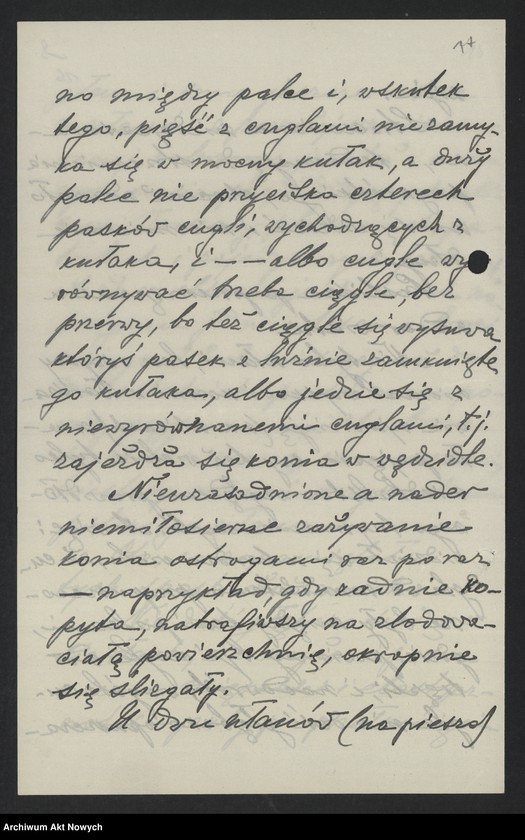 17
no między palce i, wskutek
tego, pięść z cuglami nie zamy-
ka się w mocny kułak, a duży
palec nie przyciska czterech
pasków cugli, wychodzących z
kułaka, i — — albo cugle wy
równywać trzeba ciągle, bez
przerwy, bo też ciągle się wysuwa
któryś pasek z luźnie zamknięte-
go kułaka, albo jedzie się z
niewyrównanemi cuglami, t.j.
zajeżdża się konia w wędzidle.
Nieuzasadnione a nader
niemiłosierne zażywanie
konia ostrogami raz po raz
— naprzykład, gdy zadnie ko-
pyta, natrafiwszy na zlodowa-
ciałą powierzchnię, okropnie
się ślizgały.
U dwu ułanów (na pieszo)
Archiwum Akt Nowych